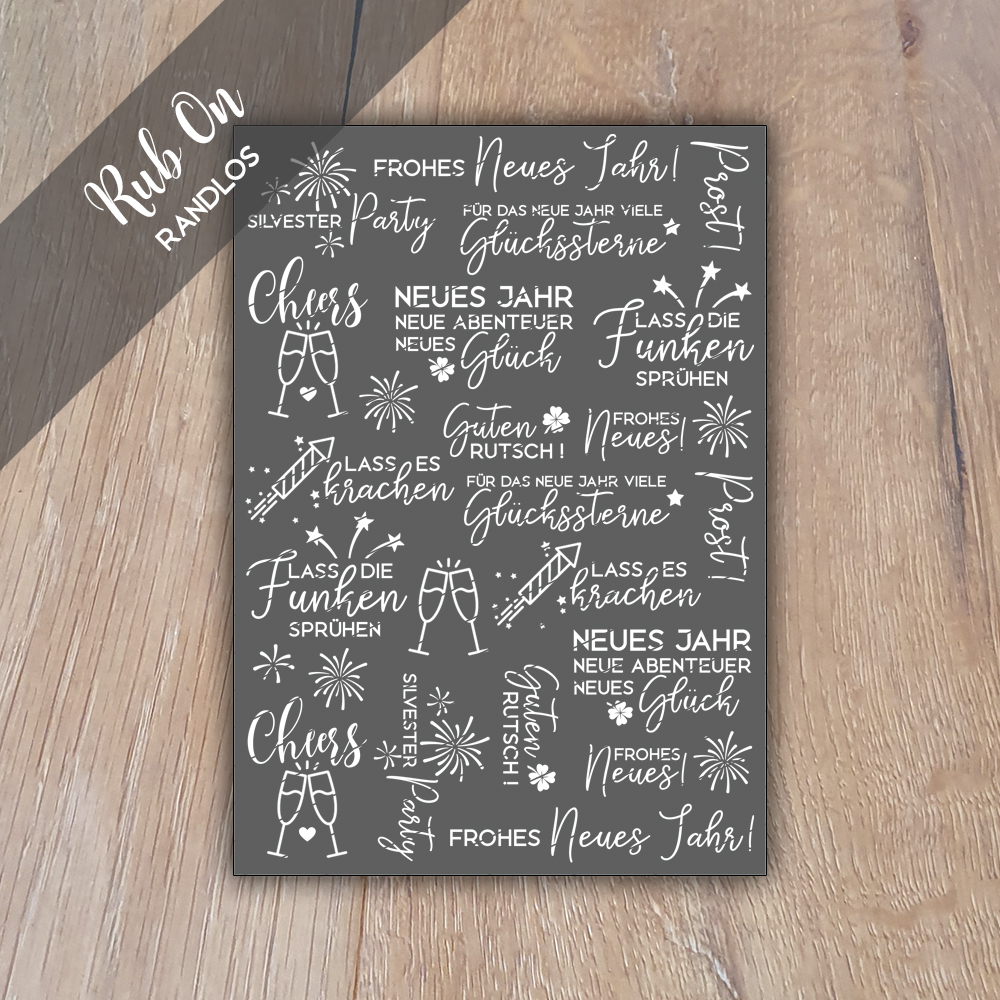 Rub On
RANDLOS
FROHES Neues Jahr!
Prost!
SILVESTER Party
FÜR DAS NEUE JAHR VIELE
Glückssterne
Cheers
NEUES JAHR
NEUE ABENTEUER
NEUES Glück
LASS DIE
Funken
SPRÜHEN
Guten
RUTSCH!
FROHES
Neues!
LASS ES
krachen
FÜR DAS NEUE JAHR VIELE
Glückssterne
Prost!
LASS DIE
Funken
SPRÜHEN
LASS ES
krachen
NEUES JAHR
NEUE ABENTEUER
NEUES Glück
Cheers
SILVESTER
Party
Guten
RUTSCH!
FROHES
Neues!
FROHES Neues Jahr!